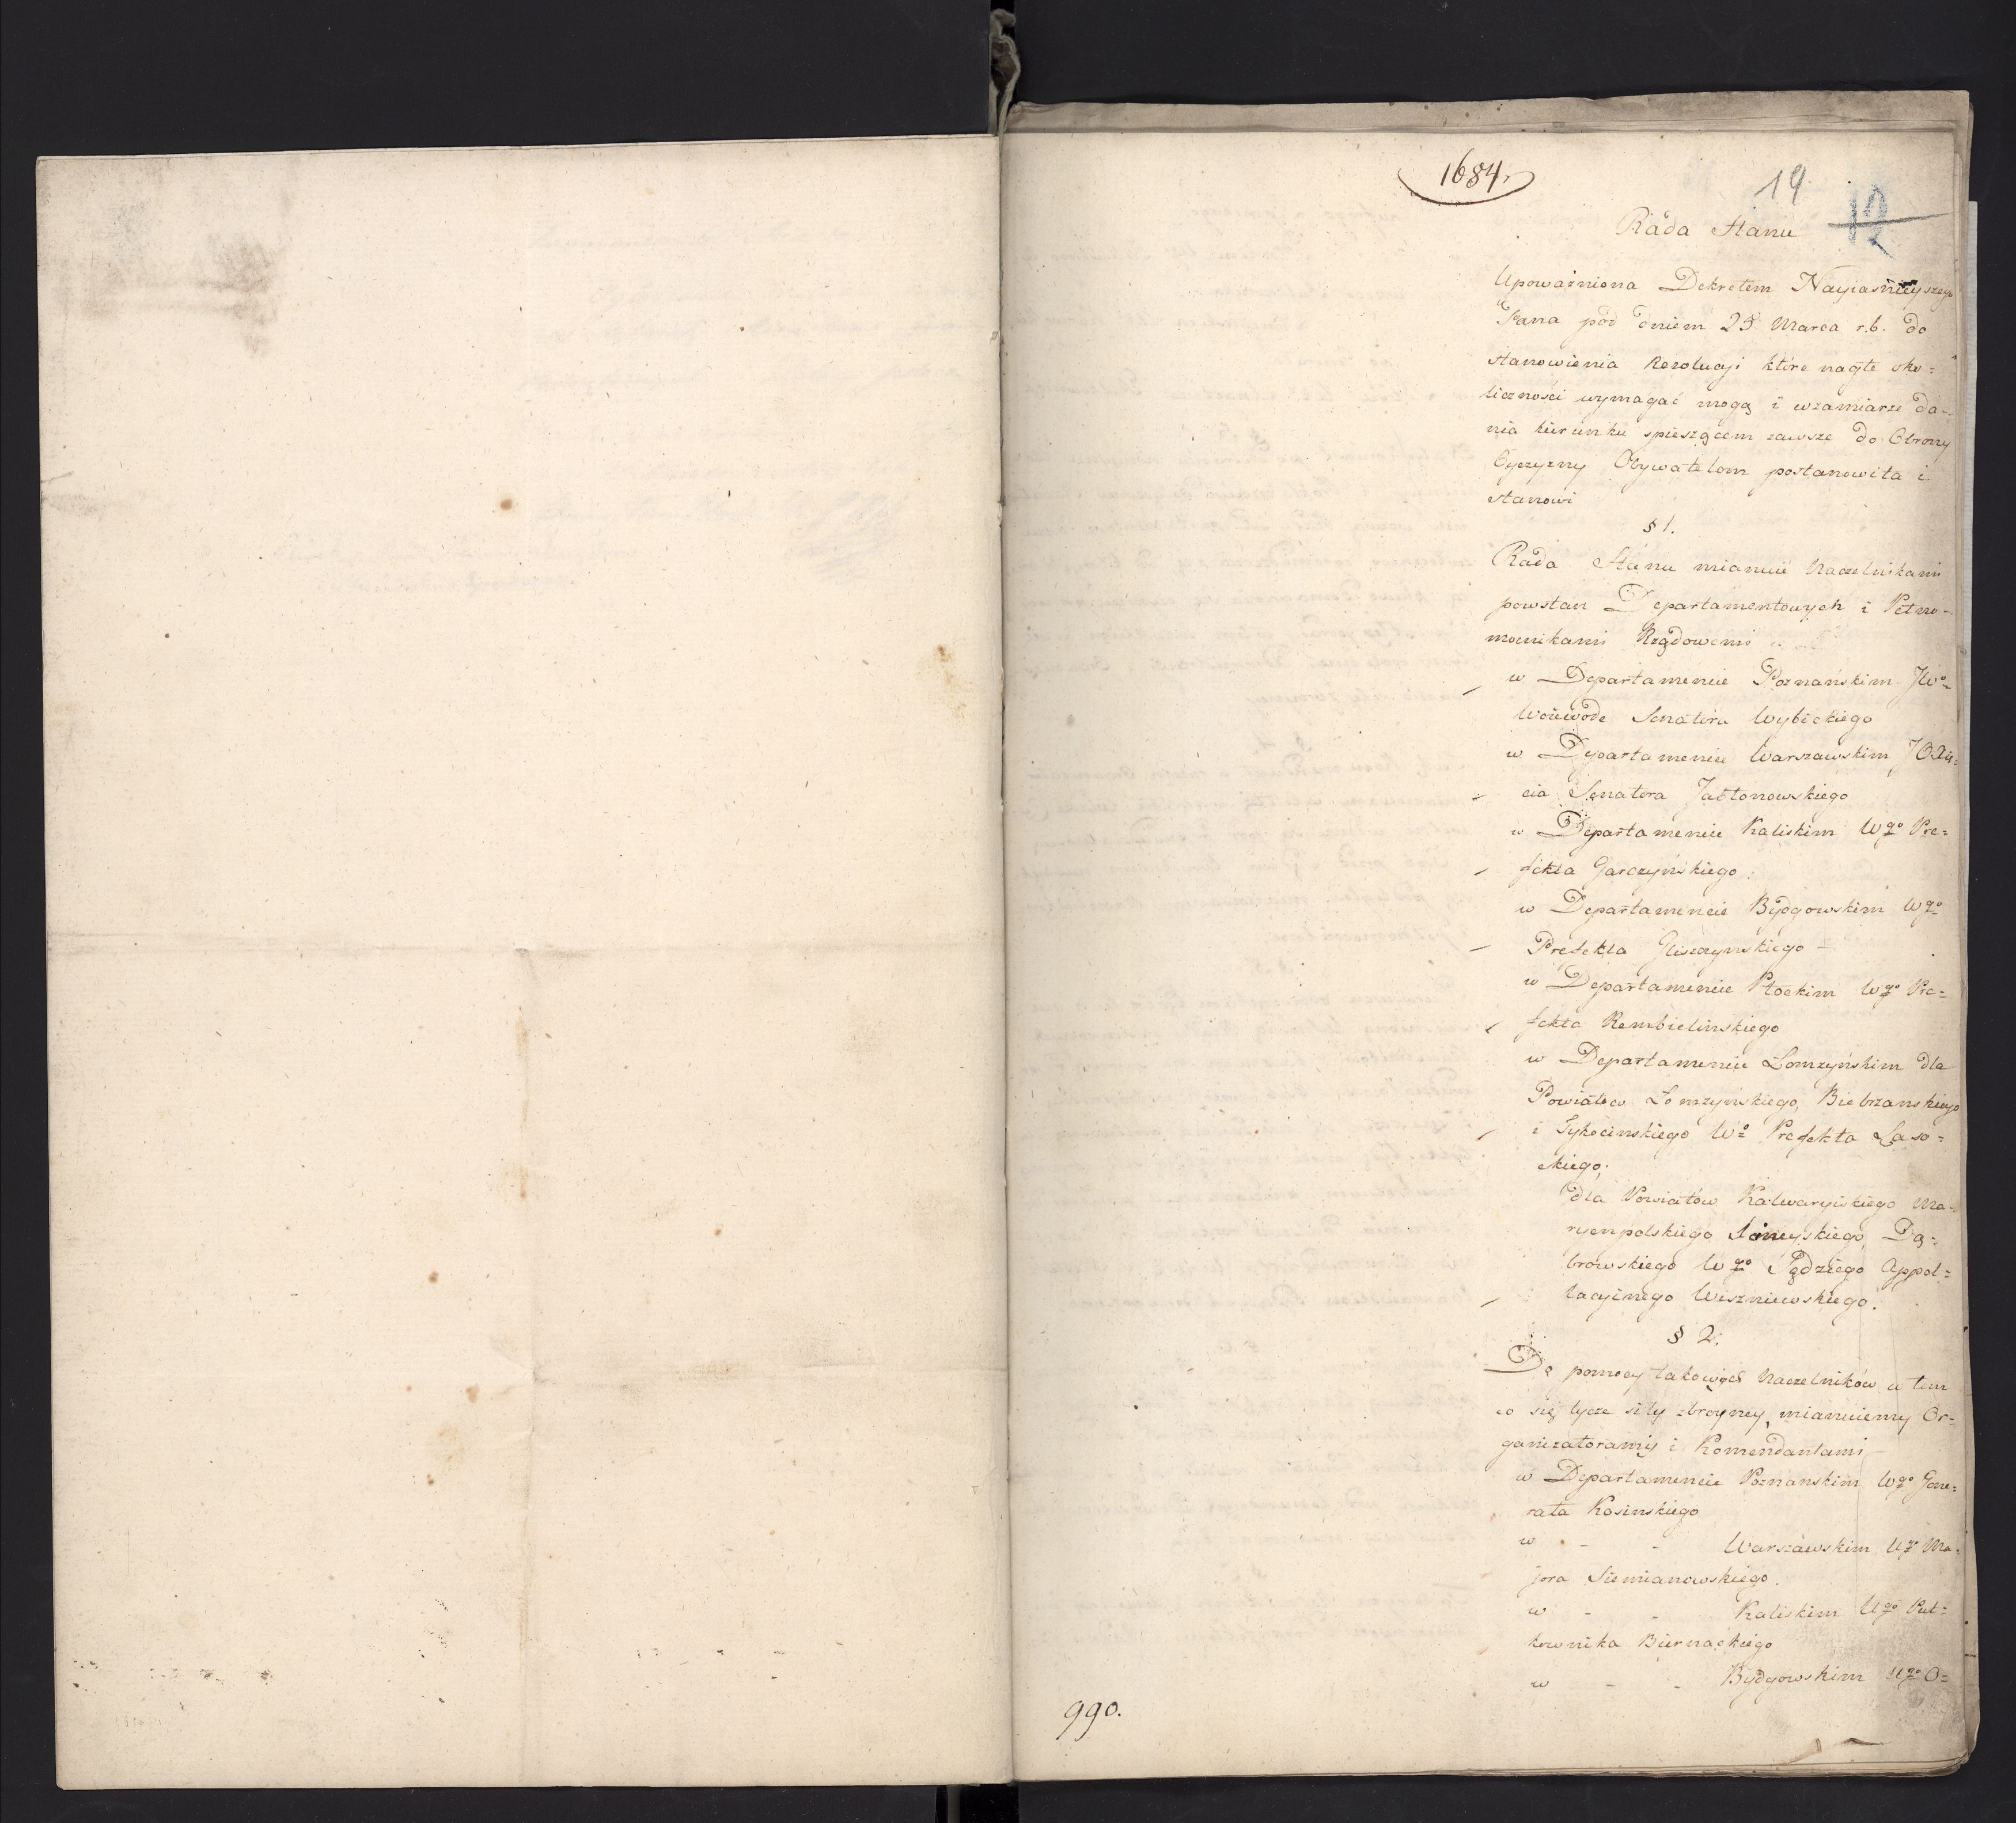 1684.
19
12
Rada Stanu
Upoważniona Dekretem Nayiasnieyszego
Pana pod dniem 25 Marca r.b. do
stanowienia Rezolucyi które nagłe oko=
liczności wymagać mogą i wzamiarze da=
nia kierunku spieszącem zawsze do Obrony
Oyczyzny Obywatelom postanowiła i
stanowi
§ 1.
Rada Stanu mianuie Naczelnikami
powstań Departamentowych i Pełno=
mocnikami Rządowemi
w Departamencie Poznańskim JWo
Woiewodę Senatora Wybickiego
w Departamencie Warszawskim JOXię=
cia Senatora Jabłonowskiego
w Departamencie Kaliskim Wgo Pre=
fekta Garczyńskiego.
w Departamencie Bydgowskim Wgo
Prefekta Gliszczynskiego –
w Departamencie Płockim Wgo Pre=
fekta Rembielinskiego
w Departamencie Łomzyńskim dla
Powiatów Łomzynskiego, Biebrzanskiego
i Tykocinskiego Wo Prefekta Laso=
ckiego;
dla Powiatów Kalwaryiskiego Ma=
ryenpolskiego Dą=
browskiego Wgo Sędziego Appel=
lacyinego Wiszniewskiego.
§ 2.
Do pomocy takowych Naczelników w tem
co się tycze siły zbroyney, mianuiemy Or=
ganizatorami i Komendantami
w Departamencie Poznanskim Wgo Gene=
rała Kosinskiego
w - - Warszawskim Wgo Ma=
jora Siemianowskiego.
w - - Kaliskim Wgo Puł=
kownika Biernackiego
w - - Bydgowskim Wgo O=
990.